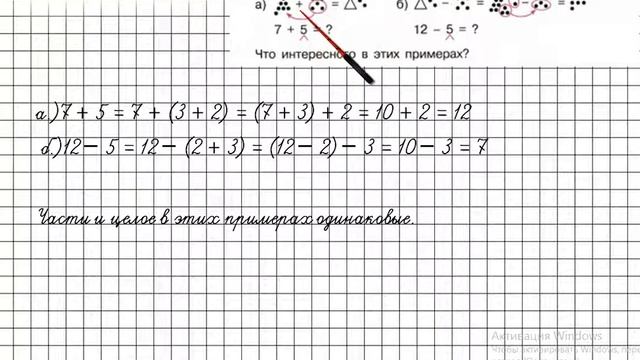 а) + = б) - = - =
7 + 5 = ? 12 - 5 = ?
Что интересного в этих примерах?
а)7 + 5 = 7 + (3 + 2) = (7 + 3) + 2 = 10 + 2 = 12
б)12 - 5 = 12 - (2 + 3) = (12 - 2) - 3 = 10 - 3 = 7
Части и целое в этих примерах одинаковые.
Активация Windows
Чтобы активировать Windows, пере